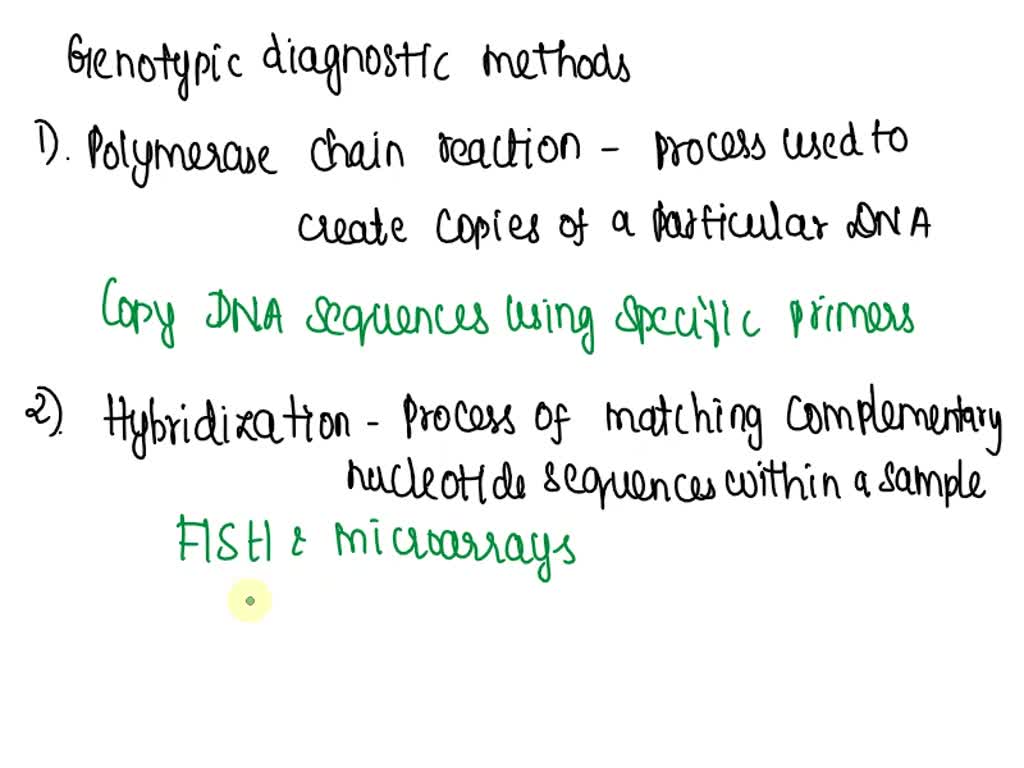 Genotypic diagnostic methods
1). Polymerase chain reaction - process used to
create copies of a particular DNA
Copy DNA sequences using specific primers
2). Hybridization - process of matching complementary
nucleotide sequences within a sample
FISH & microarrays